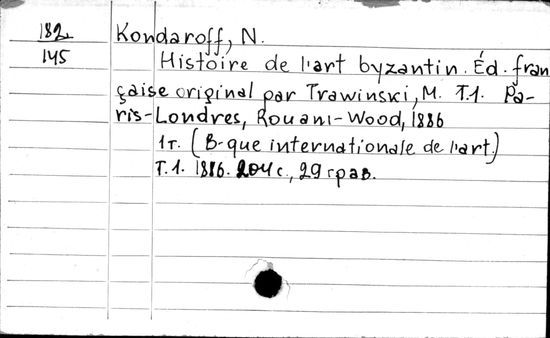 182
145
Kondaroff, N.
Histoire de l'art byzantin. Éd. fran
çaise original par Trawinski, M. T.1. Pa-
ris-Londres, Rouani-Wood, 1886
1т. (B-que internationale de l'art.)
T.1. 1886. 204 с., 29 грав.